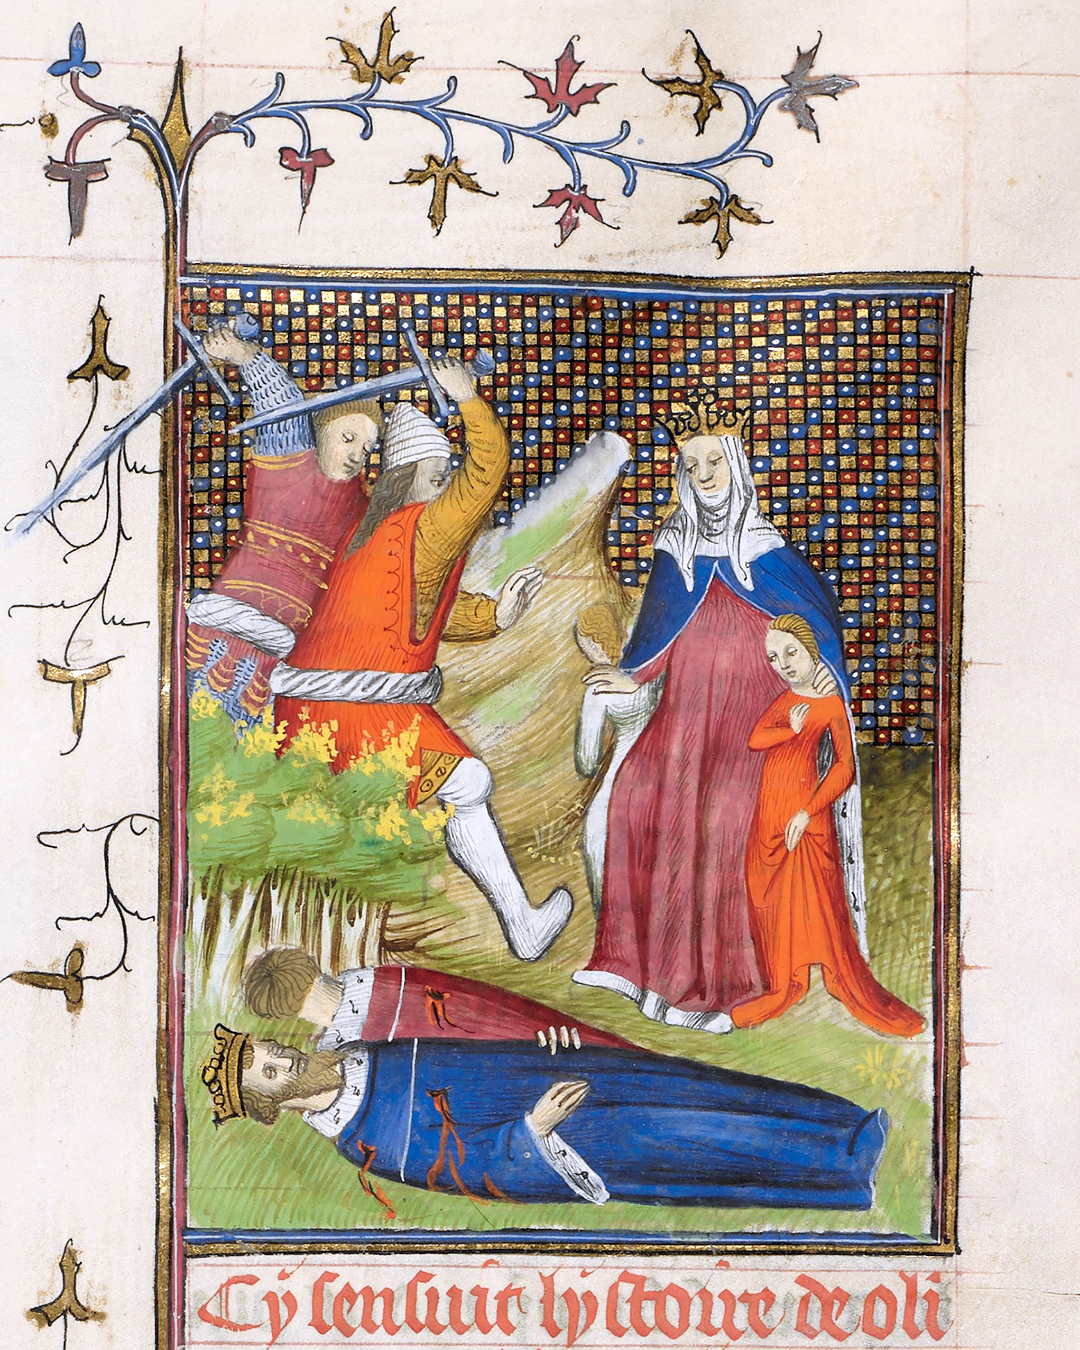 Cy sensuit lystoire de oli